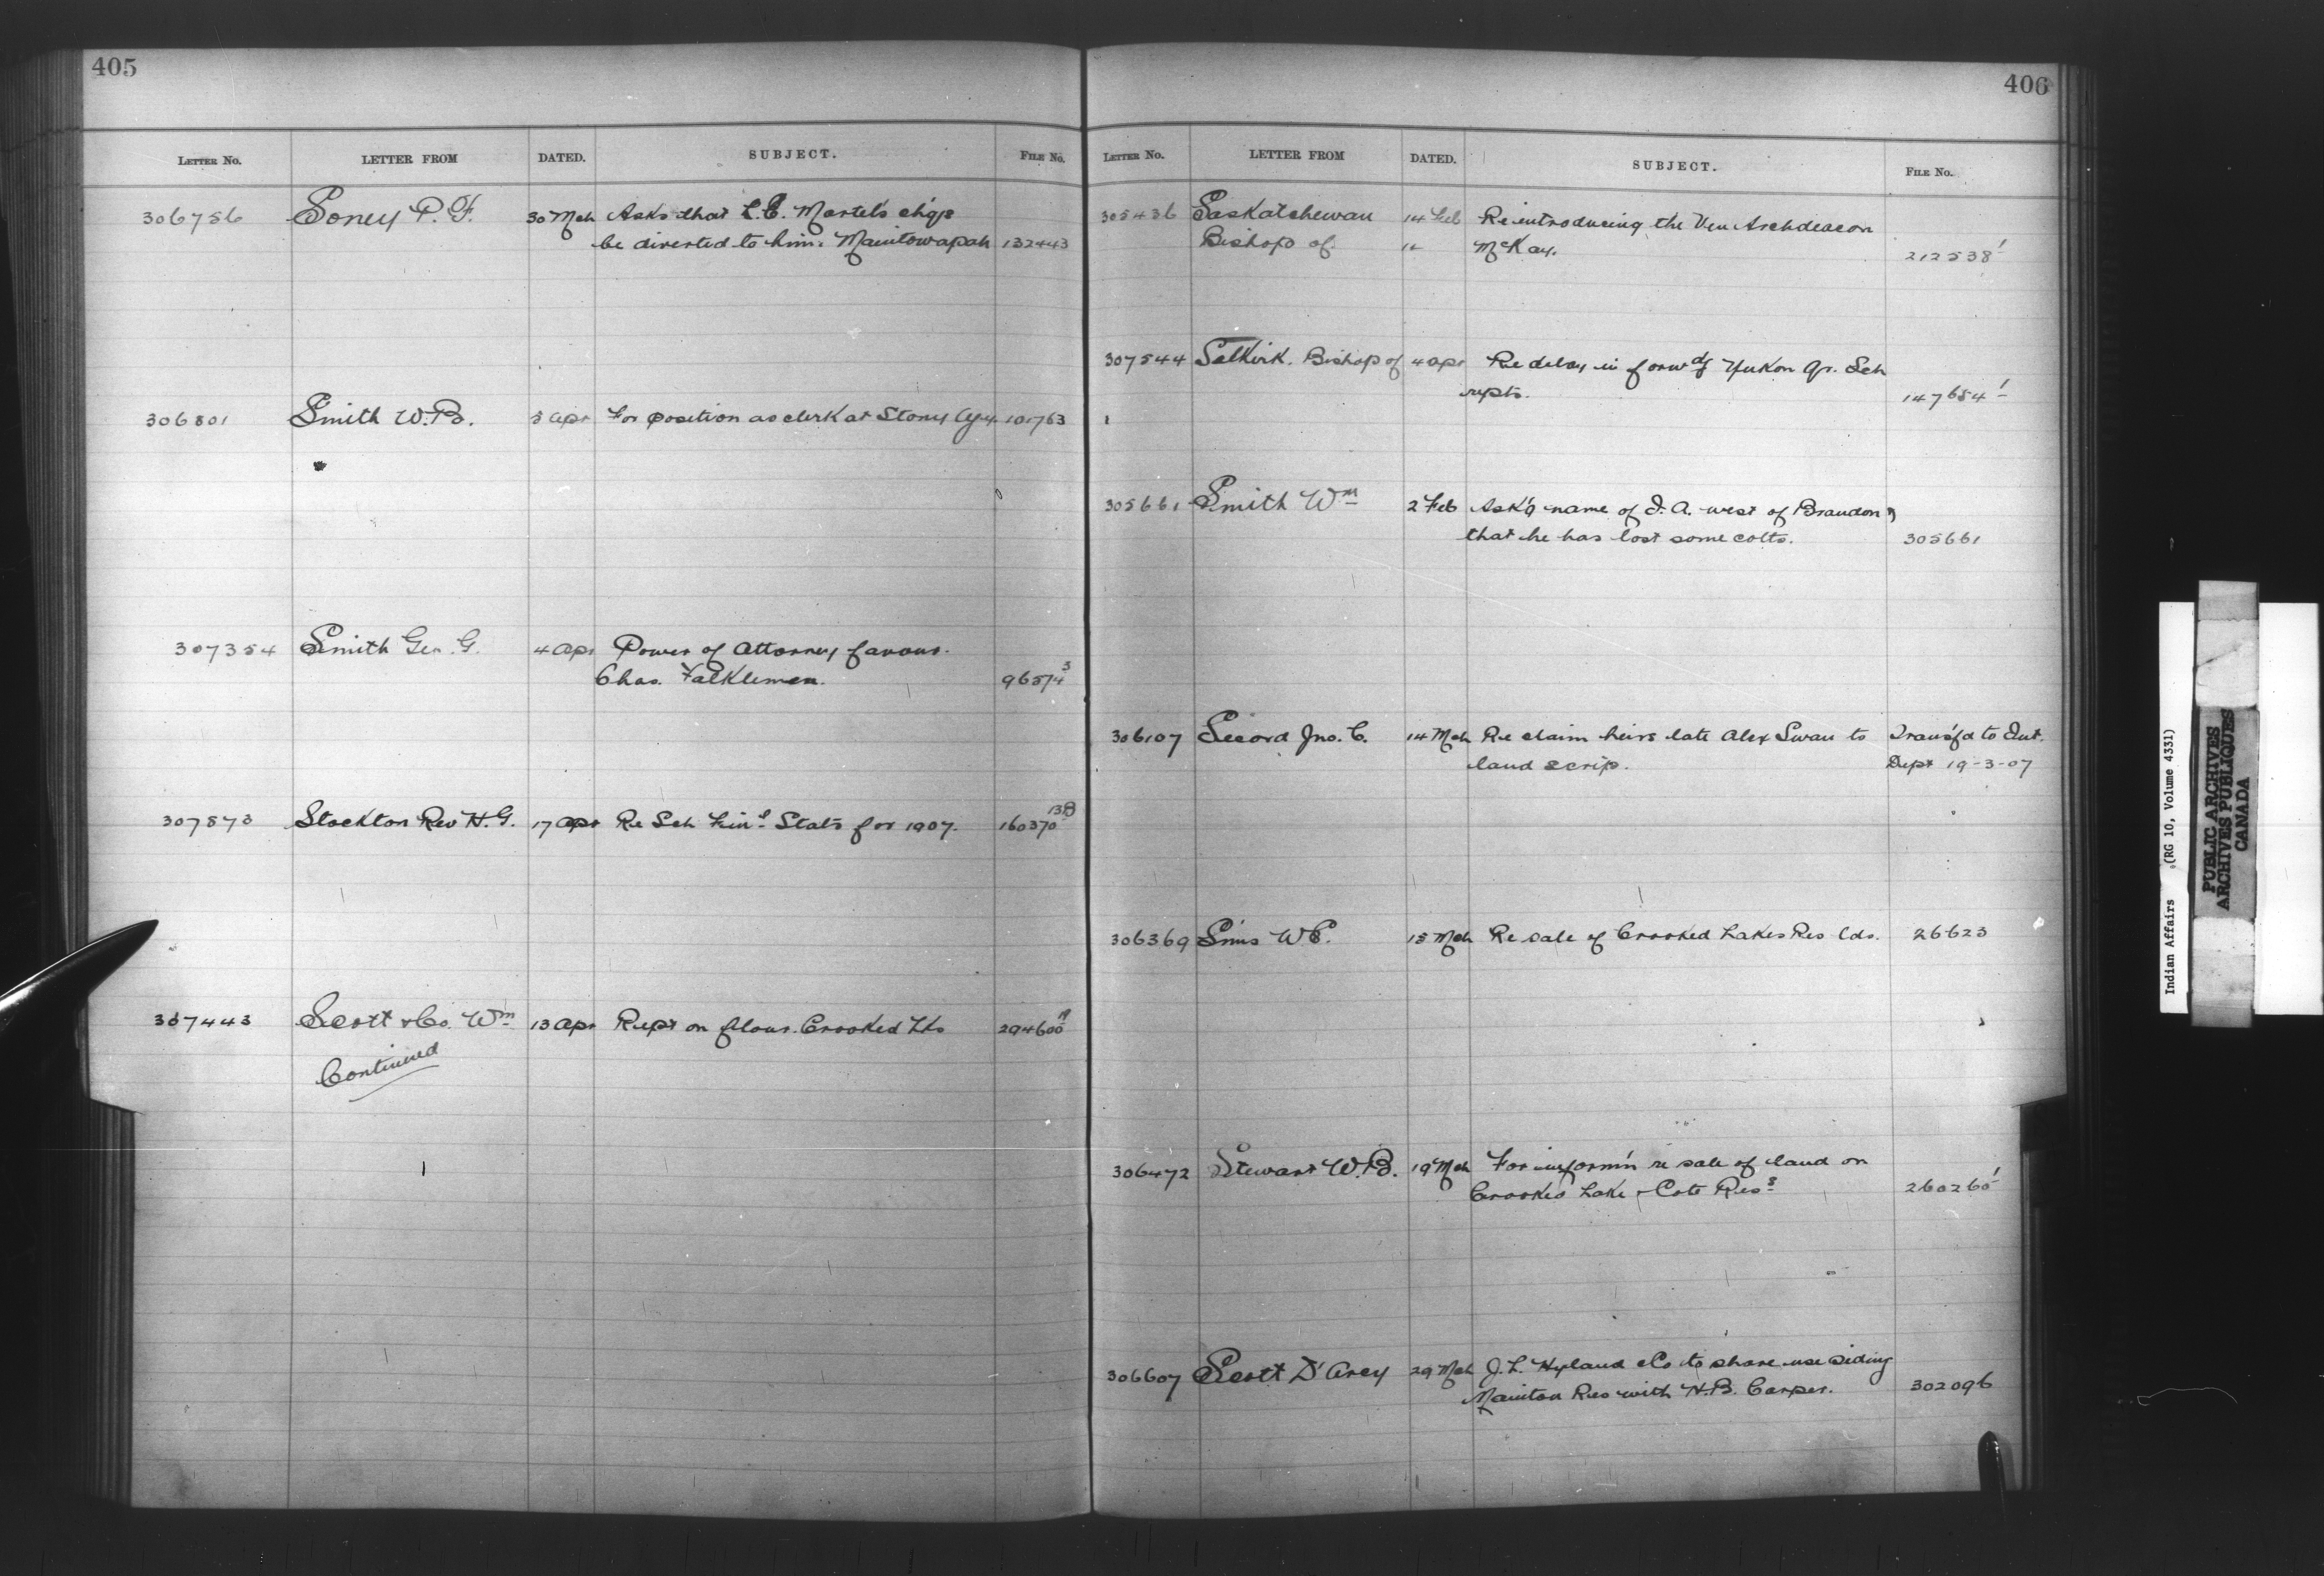 405
LETTER NO. LETTER FROM DATED. SUBJECT. FILE NO.
306756 Soney P. F. 30 Mch Asks that L. C. Martel's ch'qs
be diverted to him. Manitowapah 132443
306801 Smith W. B. 3 Apr For position as clerk at Stony Agy. 101763
307354 Smith Geo. G. 4 Apr Power of Attorney favour.
Chas. Falklemen. 96574 3
307573 Stockton Rev H. G. 17 Apr Re Sch Fin'l Stats for 1907. 160370 138
307443 Scott & Co. Wm 13 Apr Rept on flour. Crooked Lks 294600 19
Continued
406
LETTER NO. LETTER FROM DATED. SUBJECT. FILE NO.
305436 Saskatchewan 14 Feb Re introducing the Ven Archdeacon
Bishop of " McKay. 212538 1
307544 Selkirk. Bishop of 4 Apr Re delay in forwdg Yukon Qr. Sch
repts. 147654 1
305661 Smith Wm 2 Feb Ask'g name of I. A. west of Brandon &
that he has lost some colts. 305661
306107 Secord Jno. C. 14 Mch Re claim heirs late Alex Swan to Transf'd to Int.
land scrip. Dept 19-3-07
306369 Sims W E. 15 Mch Re sale of Crooked Lakes Res lds. 26623
306472 Stewart W. B. 19 Mch For inform'n re sale of land on
Crooked Lake & Cote Ress 260260 1
306607 Scott D'Arcy 29 Mch J. L. Hyland & Co to share use siding
Maniton Res with H. B. Carper. 302096
Indian Affairs (RG 10, Volume 4331)
PUBLIC ARCHIVES
ARCHIVES PUBLIQUES
CANADA